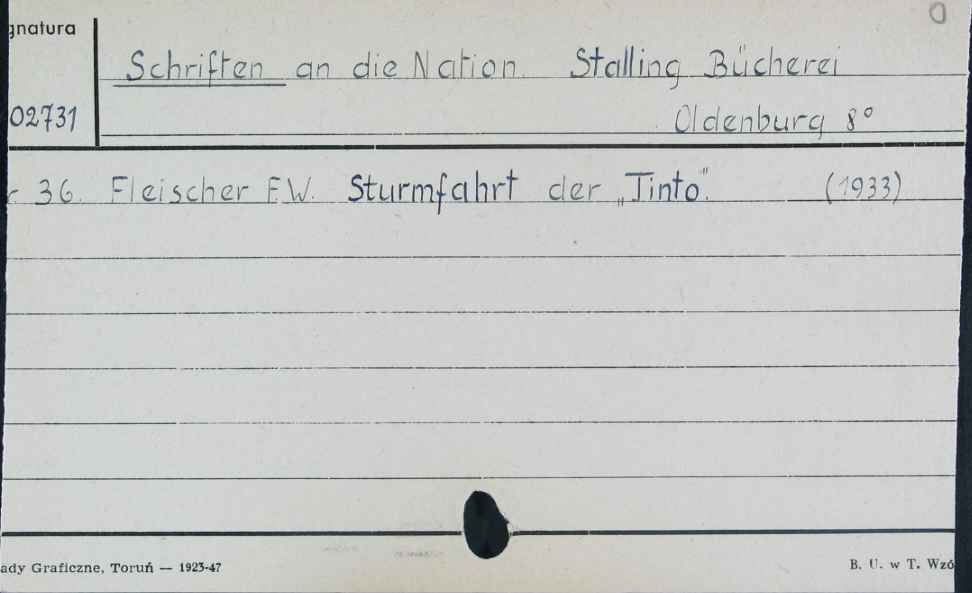 gnatura
Schriften an die Nation. Stalling Bücherei
02731
Oldenburg 8°
r 36. Fleischer F.W. Sturmfahrt der „Tinto". (1933)
ady Graficzne, Toruń — 1923-47
B. U. w T. Wzó